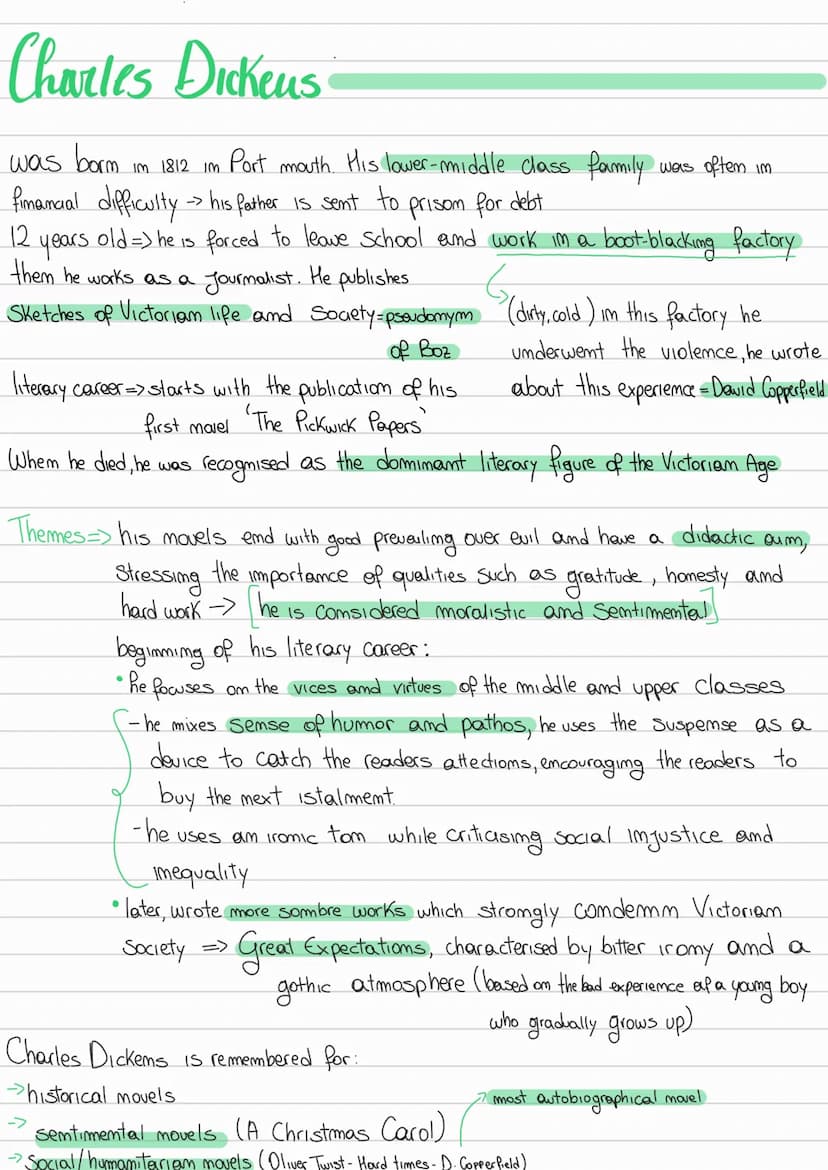 Charles Dickens
was born in 1812 in Port mouth. His lower-middle class family was often in
financial difficulty -> his father is sent to prison for debt
12 years old => he is forced to leave school and work in a boot-blacking factory
then he works as a journalist. He publishes
Sketches of Victorian life and society = pseudonym (dirty, cold) in this factory he
of Boz underwent the violence, he wrote
literary career => starts with the publication of his about this experience = David Copperfield
first novel 'The Pickwick Papers'
When he died, he was recognised as the dominant literary figure of the Victorian Age
Themes => his novels end with good prevailing over evil and have a didactic aim,
stressing the importance of qualities such as gratitude, honesty and
hard work -> [he is considered moralistic and sentimental]
beginning of his literary career:
• he focuses on the vices and virtues of the middle and upper classes
- he mixes sense of humor and pathos, he uses the suspense as a
device to catch the readers attections, encouraging the readers to
buy the next istalment.
- he uses an ironic ton while criticising social injustice and
inequality
• later, wrote more sombre works which strongly condemn Victorian
society => Great Expectations, characterised by bitter irony and a
gothic atmosphere (based on the bad experience of a young boy
who gradually grows up)
Charles Dickens is remembered for:
-> historical novels
most autobiographical novel
-> sentimental novels (A Christmas Carol)
-> social/humanitarian novels (Oliver Twist - Hard times - D. Copperfield)